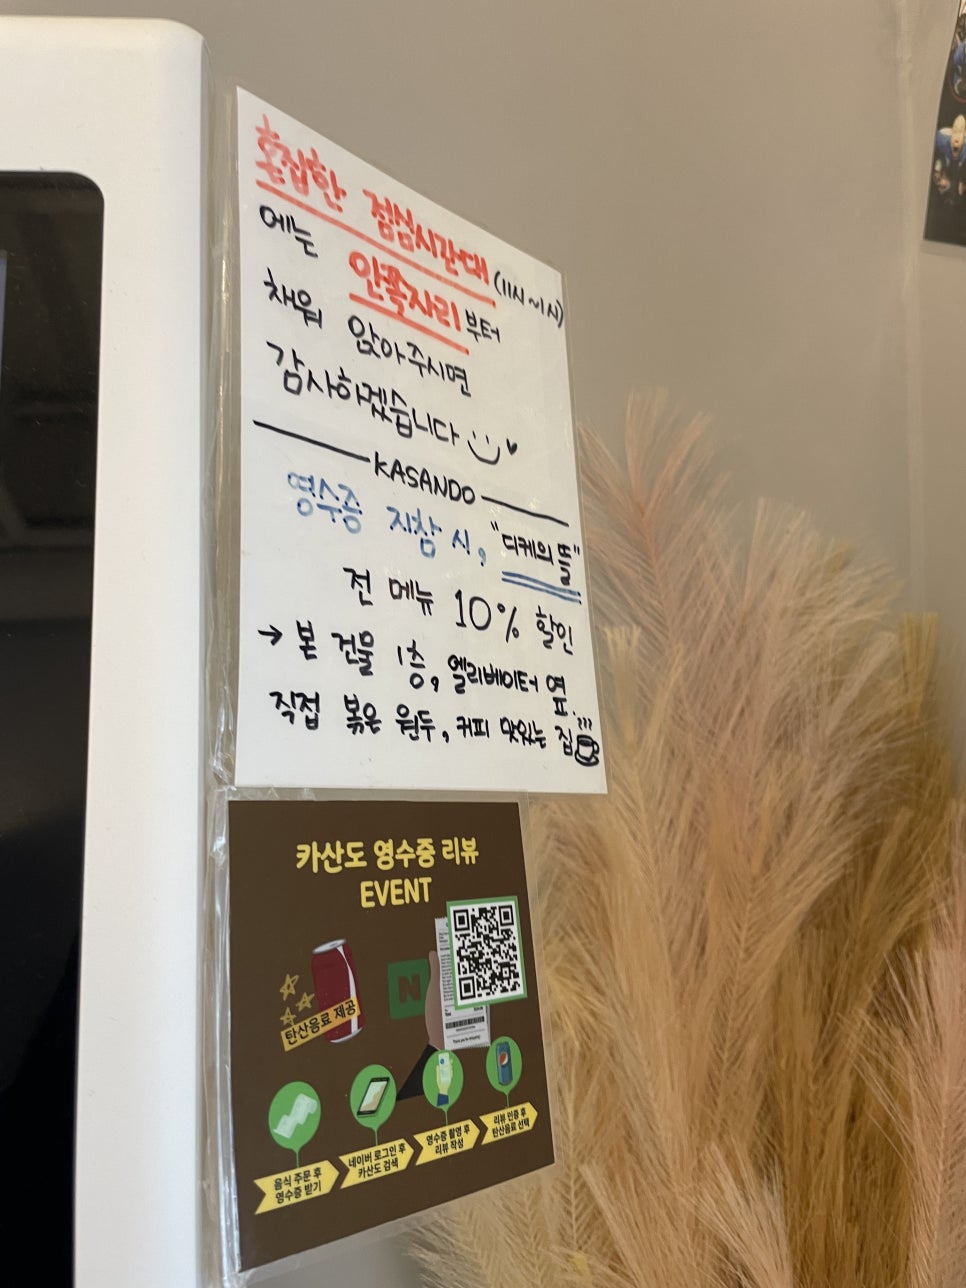 혼잡한 점심시간대(11시~1시)
에는 안쪽자리부터
채워 앉아주시면
감사하겠습니다
KASANDO
영수증 지참 시, "디케의 뜰"
전 메뉴 10% 할인
→ 본 건물 1층, 엘리베이터 옆.
직접 볶은 원두, 커피 맛있는 집
카산도 영수증 리뷰
EVENT
탄산음료 제공
N
음식 주문 후
영수증 받기
네이버 로그인 후
카산도 검색
영수증 촬영 후
리뷰 작성
리뷰 인증 후
탄산음료 선택